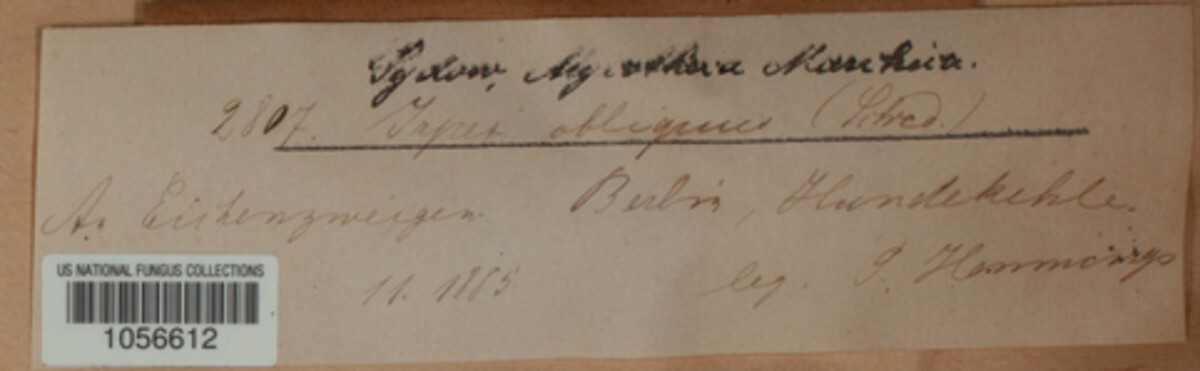 Sydow, Mycotheca Marchica.
2807. Irpex obliquus (Schrad.)
An Eichenzweigen Berlin, Hundekehle.
11. 1885 leg. P. Hennings
US NATIONAL FUNGUS COLLECTIONS
1056612